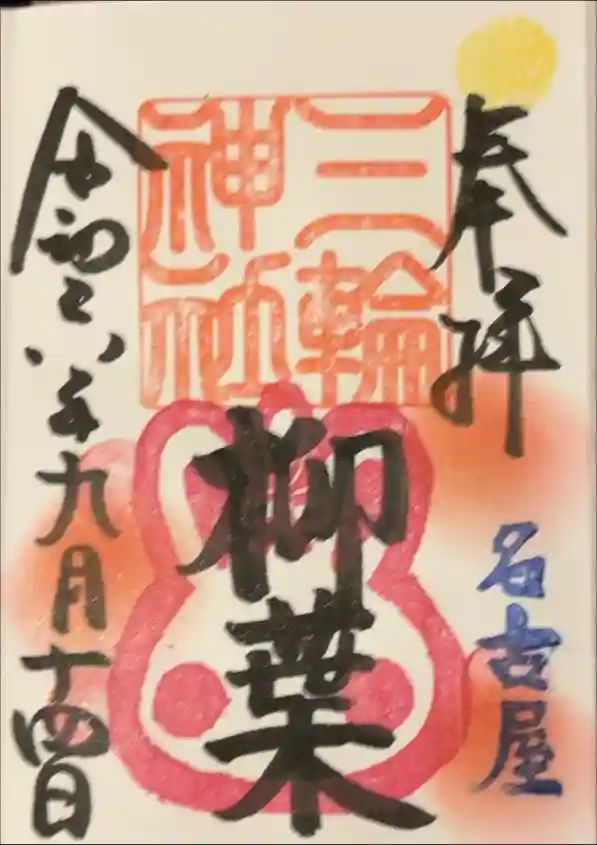 奉拝
名古屋
三輪
神社
柳葉
令和六年九月十四日